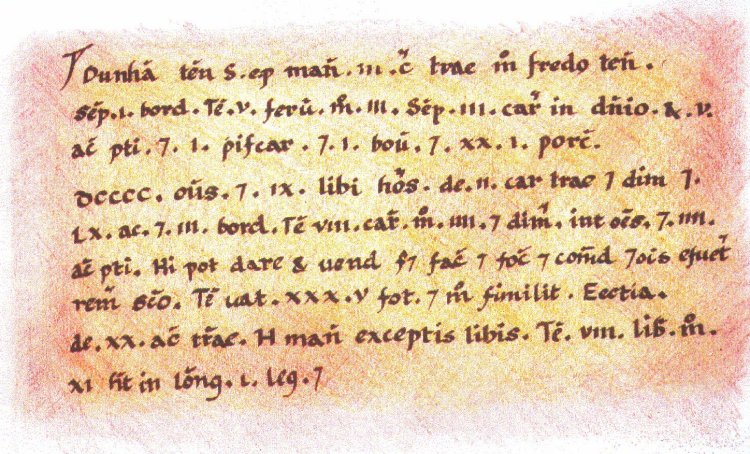 Dunhā tēn S. ep mañ. III. c̄ trae m̊ fredo ten̄.
Sēp. I. bord. Tē. V. ferū. m̊. III. Sēp. III. car̃ in dn̄io. & V.
ac̄ pti. 7. I. piscar. 7. I. boū. 7. XX. I. porc̄.
DCCCC. oūs. 7. IX. libi hōs. de. II. car trae 7 dim 7.
LX. ac. 7. III. bord. Tē VIII. car̃. m̊. IIII. 7 dim̃. int oēs. 7. IIII.
ac̄ pti. Hi pot dare & uend s7 sac̄ 7 soc̄ 7 com̄d 7ois
rem̃ sc̄o. Tē uat. XXX. V sot. 7 m̊ similit. Ecctia.
de. XX. ac̄ tr̄ae. H mañ exceptis libis. Tē. VIII. lib̄. m̊.
XI ht̄ in lōng. I. leg. 7